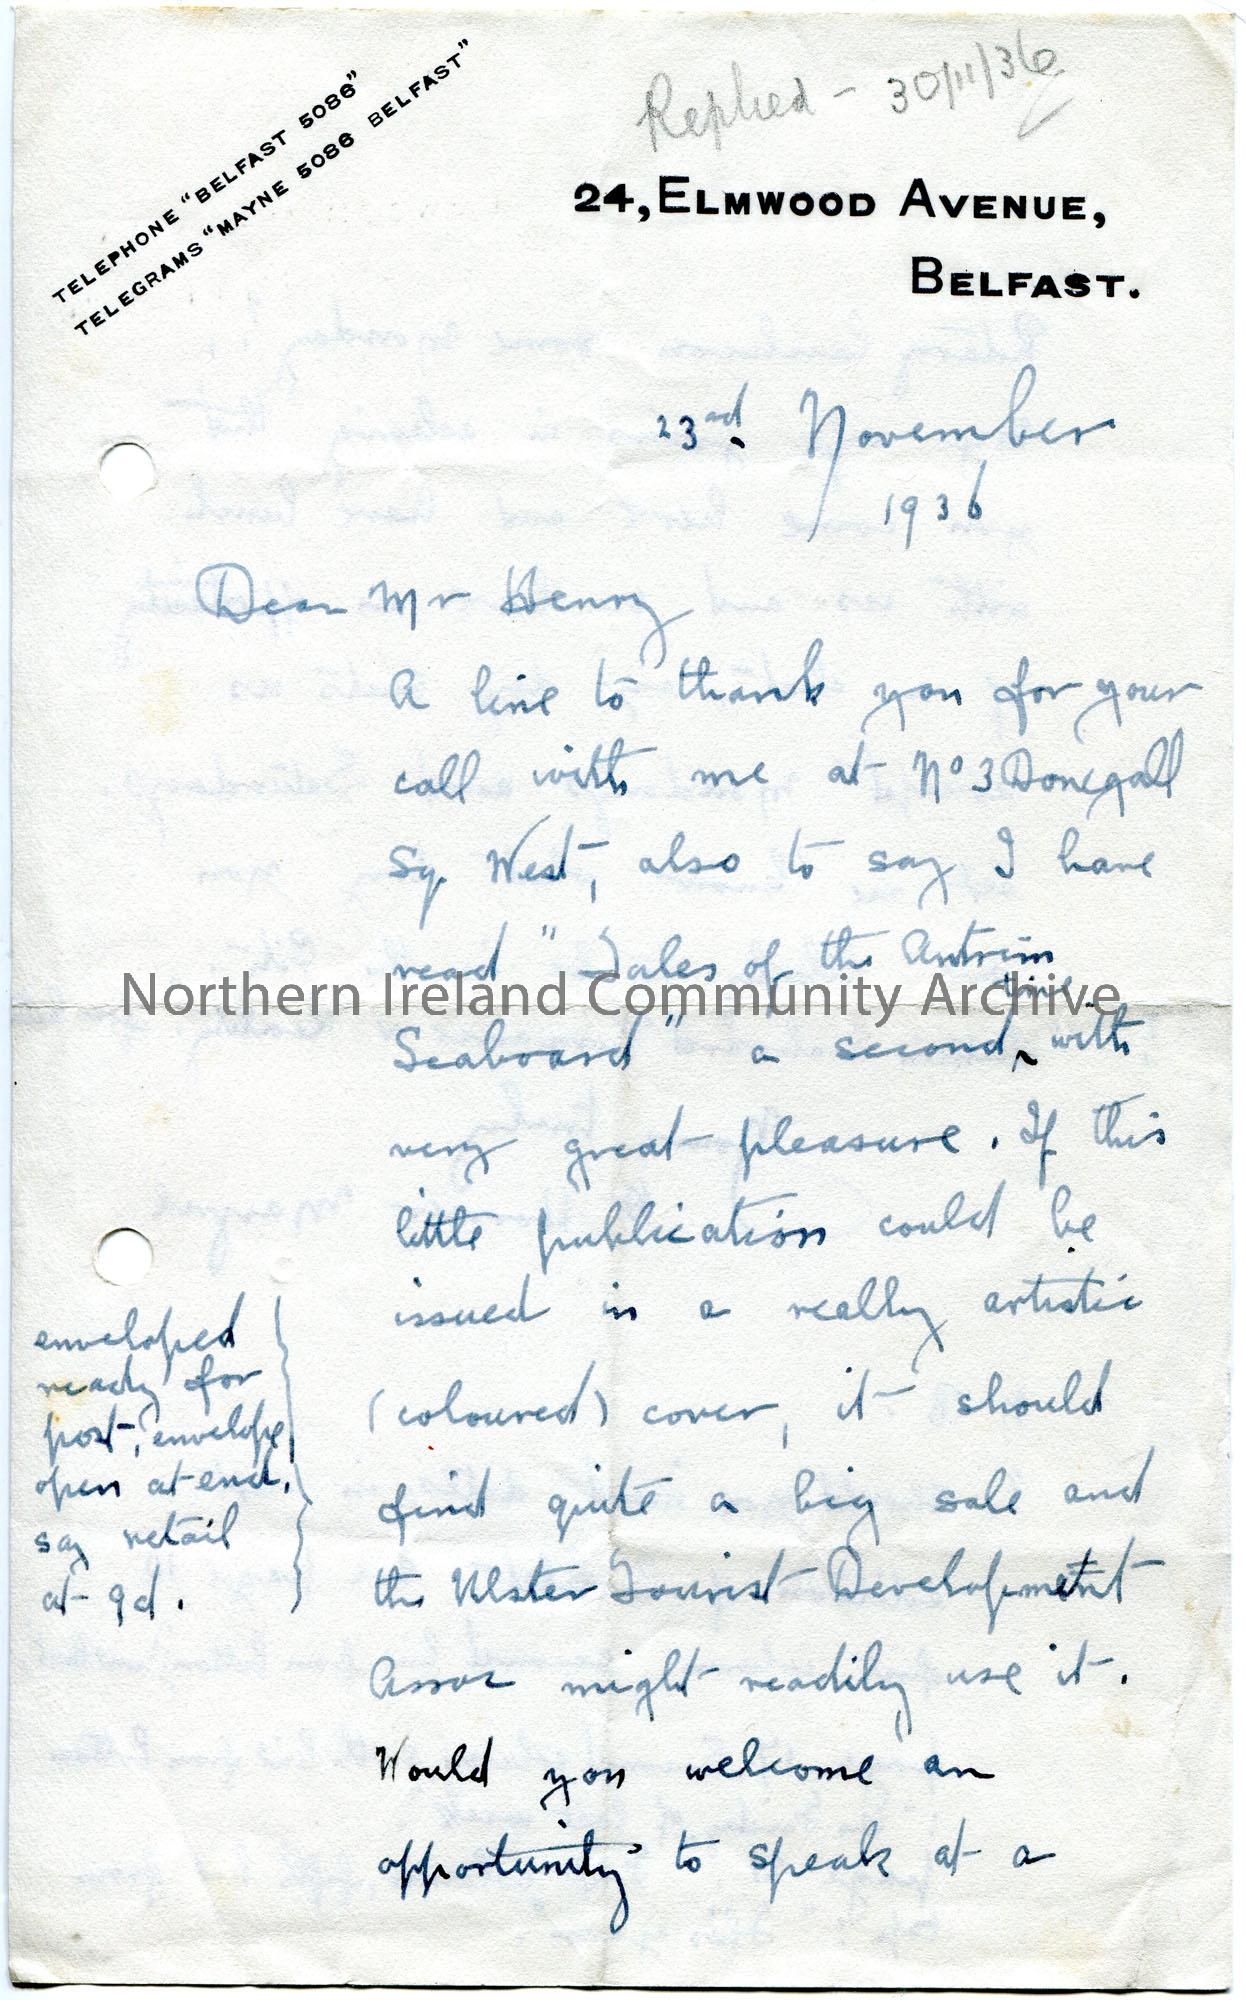 Replied - 30/11/36
TELEPHONE "BELFAST 5086"
TELEGRAMS "MAYNE 5086 BELFAST"
24, ELMWOOD AVENUE,
BELFAST.
23rd November
1936
Dear Mr Henry
A line to thank you for your
call with me at No 3 Donegall
Sq. West, also to say I have
read "Tales of the Antrim
Seaboard" a second time with
very great pleasure. If this
little publication could be
issued in a really artistic
(coloured) cover, it should
find quite a big sale and
the Ulster Tourist Development
Assoc might readily use it.
Would you welcome an
opportunity to speak at a
enveloped
ready for
post, envelope
open at end.
say retail
at 9d.
Northern Ireland Community Archive